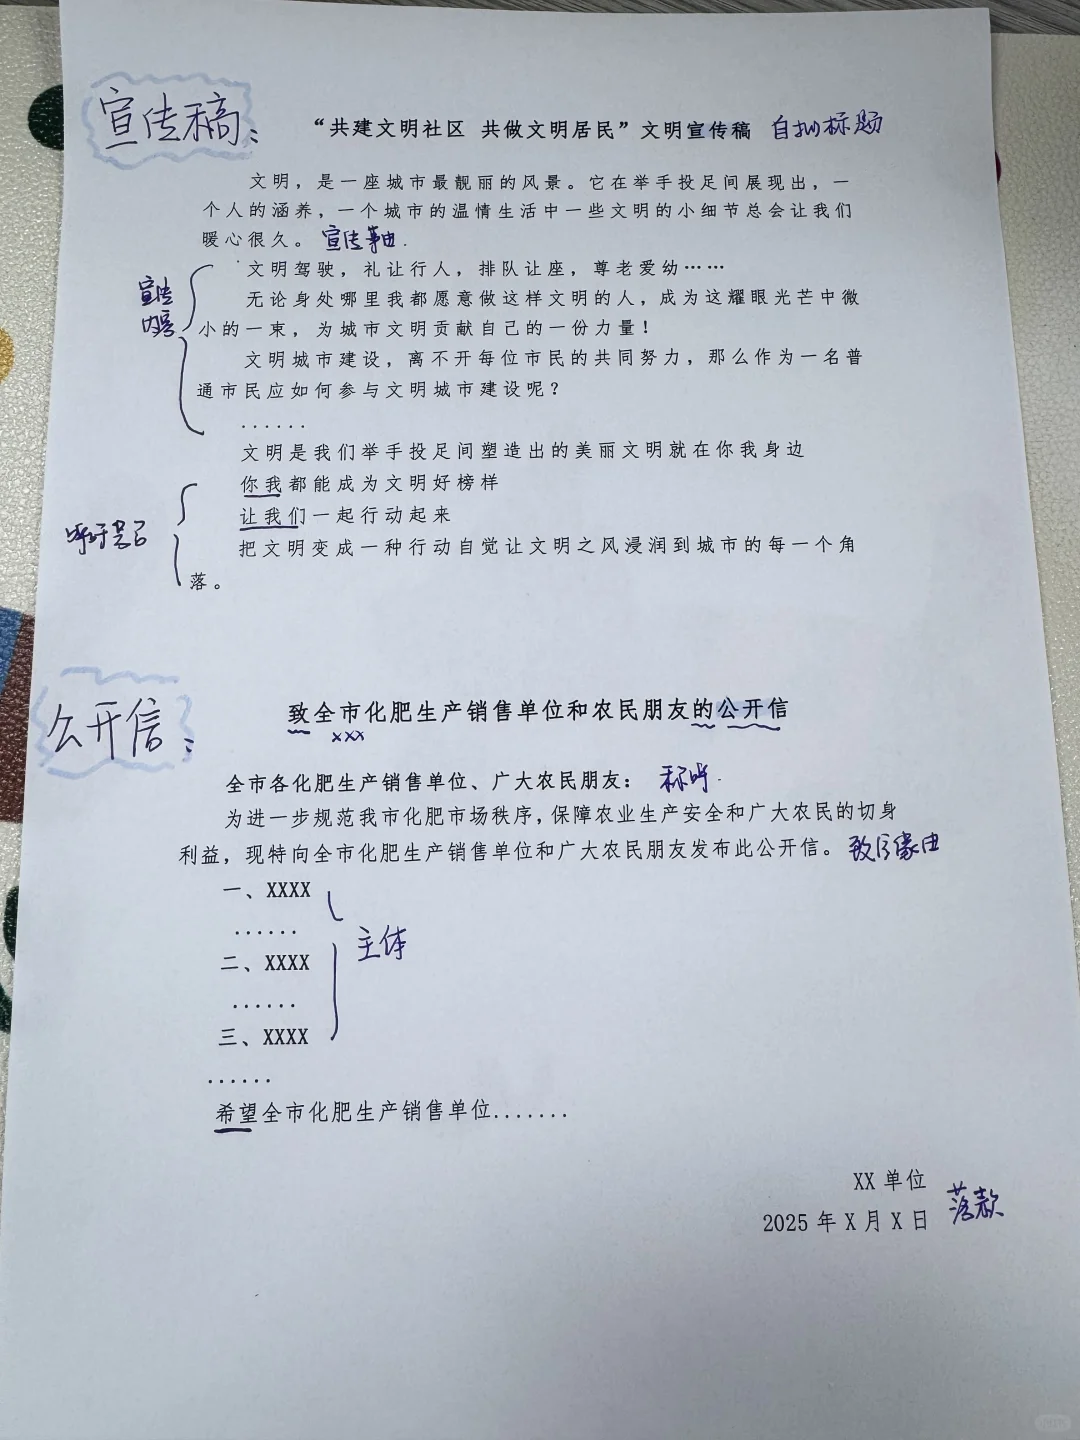 宣传稿：
“共建文明社区 共做文明居民”文明宣传稿 自拟标题
文明，是一座城市最靓丽的风景。它在举手投足间展现出，一
个人的涵养，一个城市的温情生活中一些文明的小细节总会让我们
暖心很久。 宣传事由.
文明驾驶，礼让行人，排队让座，尊老爱幼……
宣传
内容
无论身处哪里我都愿意做这样文明的人，成为这耀眼光芒中微
小的一束，为城市文明贡献自己的一份力量！
文明城市建设，离不开每位市民的共同努力，那么作为一名普
通市民应如何参与文明城市建设呢？
......
文明是我们举手投足间塑造出的美丽文明就在你我身边
你我都能成为文明好榜样
让我们一起行动起来
呼吁号召
把文明变成一种行动自觉让文明之风浸润到城市的每一个角
落。
公开信：
致全市化肥生产销售单位和农民朋友的公开信
xxx
全市各化肥生产销售单位、广大农民朋友： 称呼.
为进一步规范我市化肥市场秩序，保障农业生产安全和广大农民的切身
利益，现特向全市化肥生产销售单位和广大农民朋友发布此公开信。 致信缘由
一、XXXX
......
主体
二、XXXX
......
三、XXXX
......
希望全市化肥生产销售单位.......
XX 单位
2025 年 X 月 X 日 落款